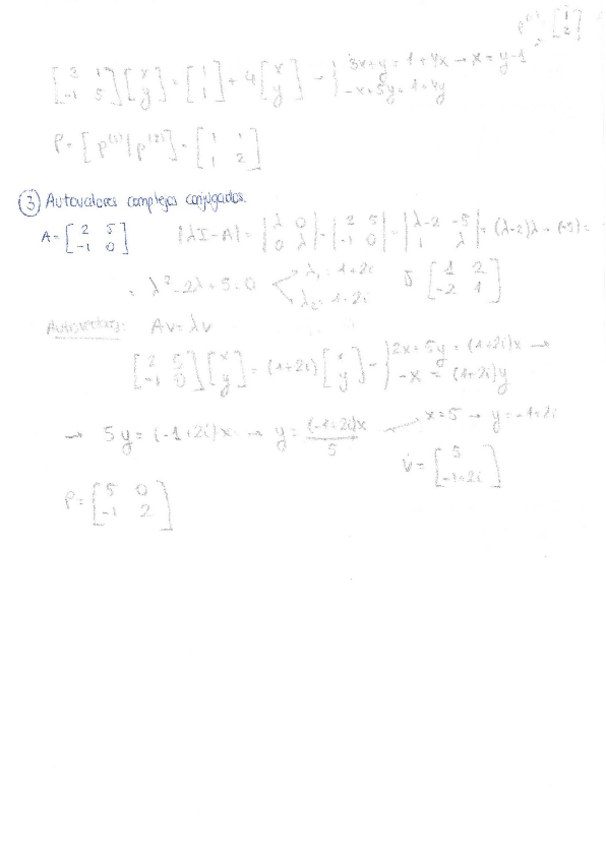 p⁽²⁾ = [1; 2]
[3 1; -1 5][x; y] = [1; 1] + 4[x; y] → } 3x+y = 1+4x → x = y-1
-x+5y = 1+4y
P = [p⁽¹⁾|p⁽²⁾] = [1 1; 1 2]
③ Autovalores complejos conjugados.
A = [2 5; -1 0] |λI-A| = |λ 0; 0 λ| - |2 5; -1 0| = |λ-2 -5; 1 λ| = (λ-2)λ - (-5) =
= λ²-2λ+5=0 λ₁ = 1+2i J [1 2; -2 1]
λ₂ = 1-2i
Autovectores: Av=λv
[2 5; -1 0][x; y] = (1+2i)[x; y] → } 2x+5y = (1+2i)x →
-x = (1+2i)y
→ 5y = (-1+2i)x → y = (-1+2i)x / 5 x=5 → y=-1+2i
v = [5; -1+2i]
P = [5 0; -1 2]